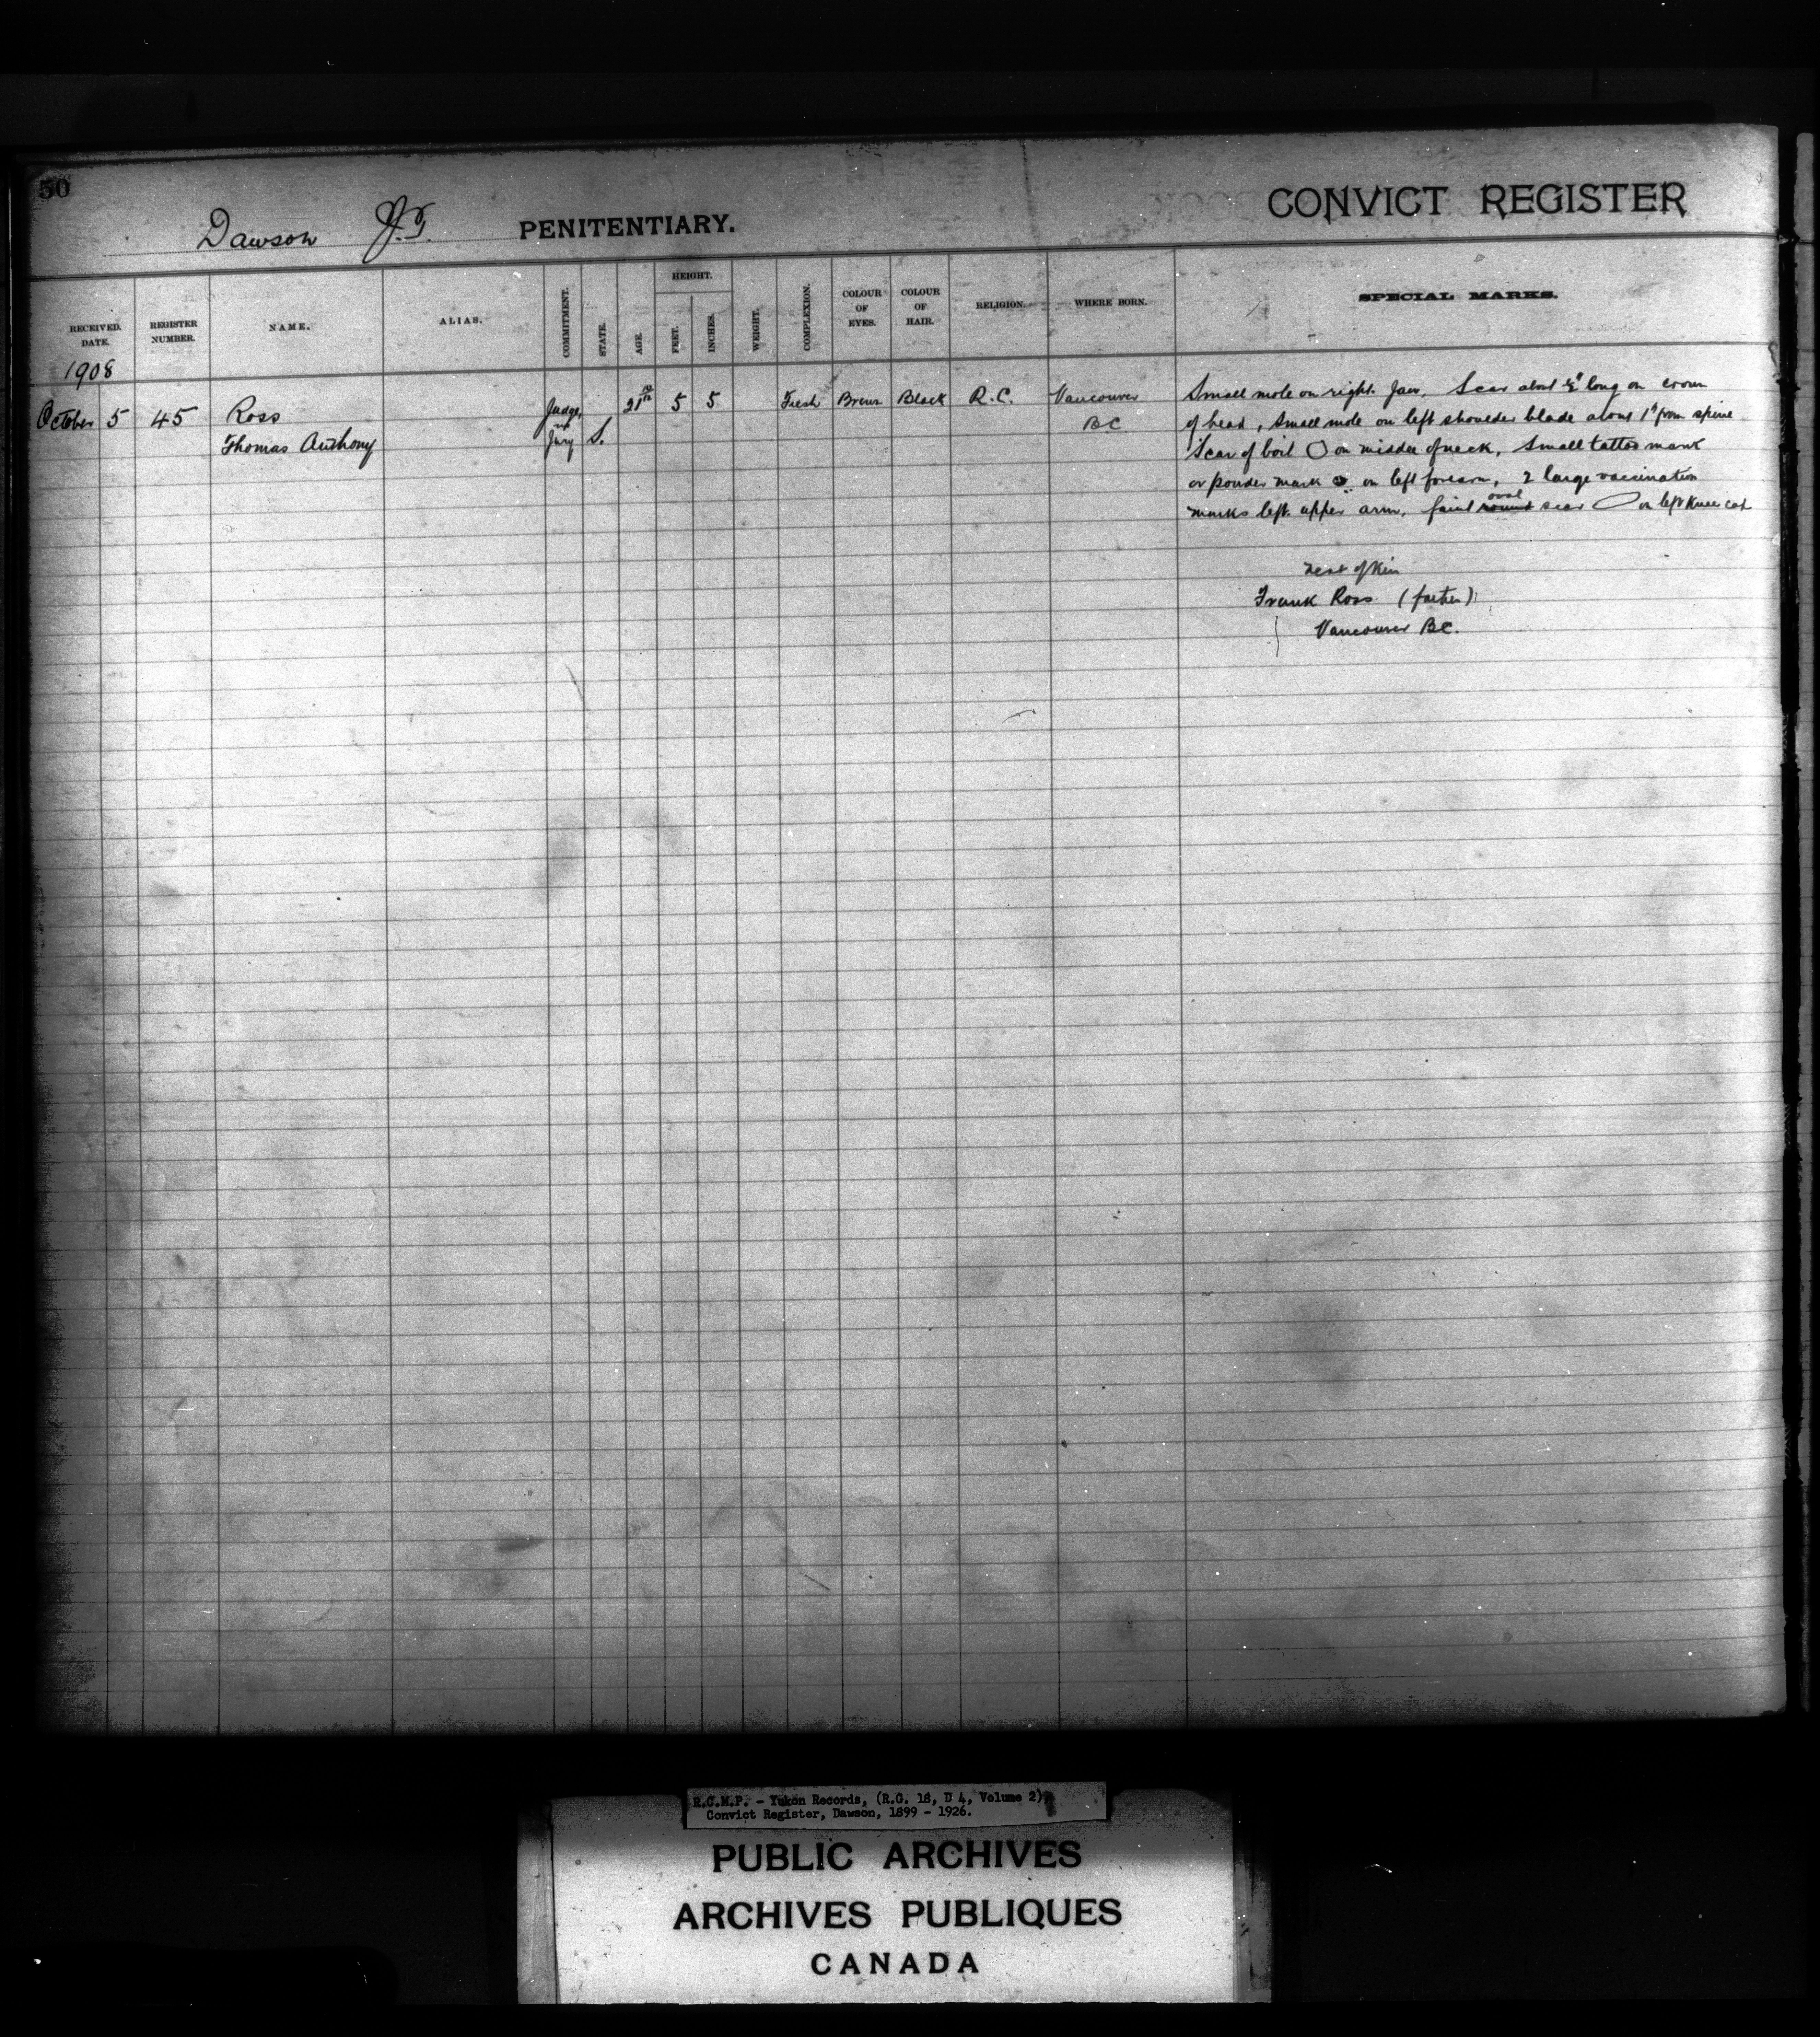 50
Dawson Y.T. PENITENTIARY.
CONVICT REGISTER
RECEIVED. DATE.
REGISTER NUMBER.
NAME.
ALIAS.
COMMITMENT.
STATE.
AGE.
HEIGHT.
FEET.
INCHES.
WEIGHT.
COMPLEXION.
COLOUR OF EYES.
COLOUR OF HAIR.
RELIGION.
WHERE BORN.
SPECIAL MARKS.
1908
October 5 45 Ross Judge, 21 5 5 Fresh Brown Black R.C. Vancouver
Thomas Anthony Jury S. B.C
Small mole on right Jaw, Scar about ½" long on crown
of head, Small mole on left shoulder blade about 1" from spine
Scar of boil on middle of neck, Small tattoo mark
or powder mark on left forearm, 2 large vaccination
marks left upper arm, faint round oval scar on left Knee cap
next of Kin
Frank Ross (father)
Vancouver B.C.
R.C.M.P. - Yukon Records, (R.G. 18, D 4, Volume 2)
Convict Register, Dawson, 1899 - 1926.
PUBLIC ARCHIVES
ARCHIVES PUBLIQUES
CANADA